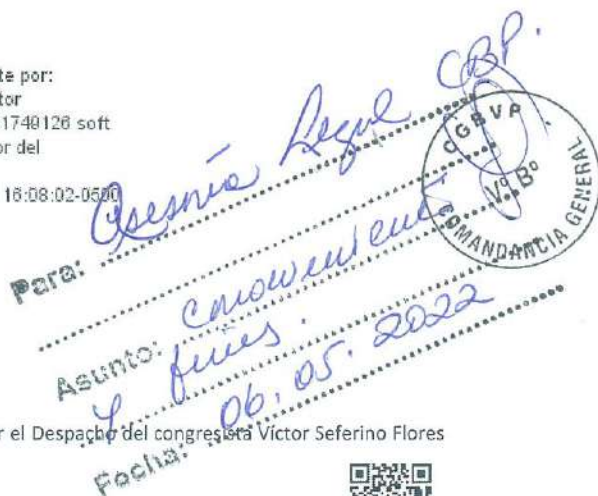 te por:
tor
1749126 soft
or del
16:08:02-0500
Para: Asesoría Legal CBP.
Asunto: conocimiento
y fines.
Fecha: 06.05.2022
CGBVP
Vº Bº
COMANDANCIA GENERAL
r el Despacho del congresista Víctor Seferino Flores